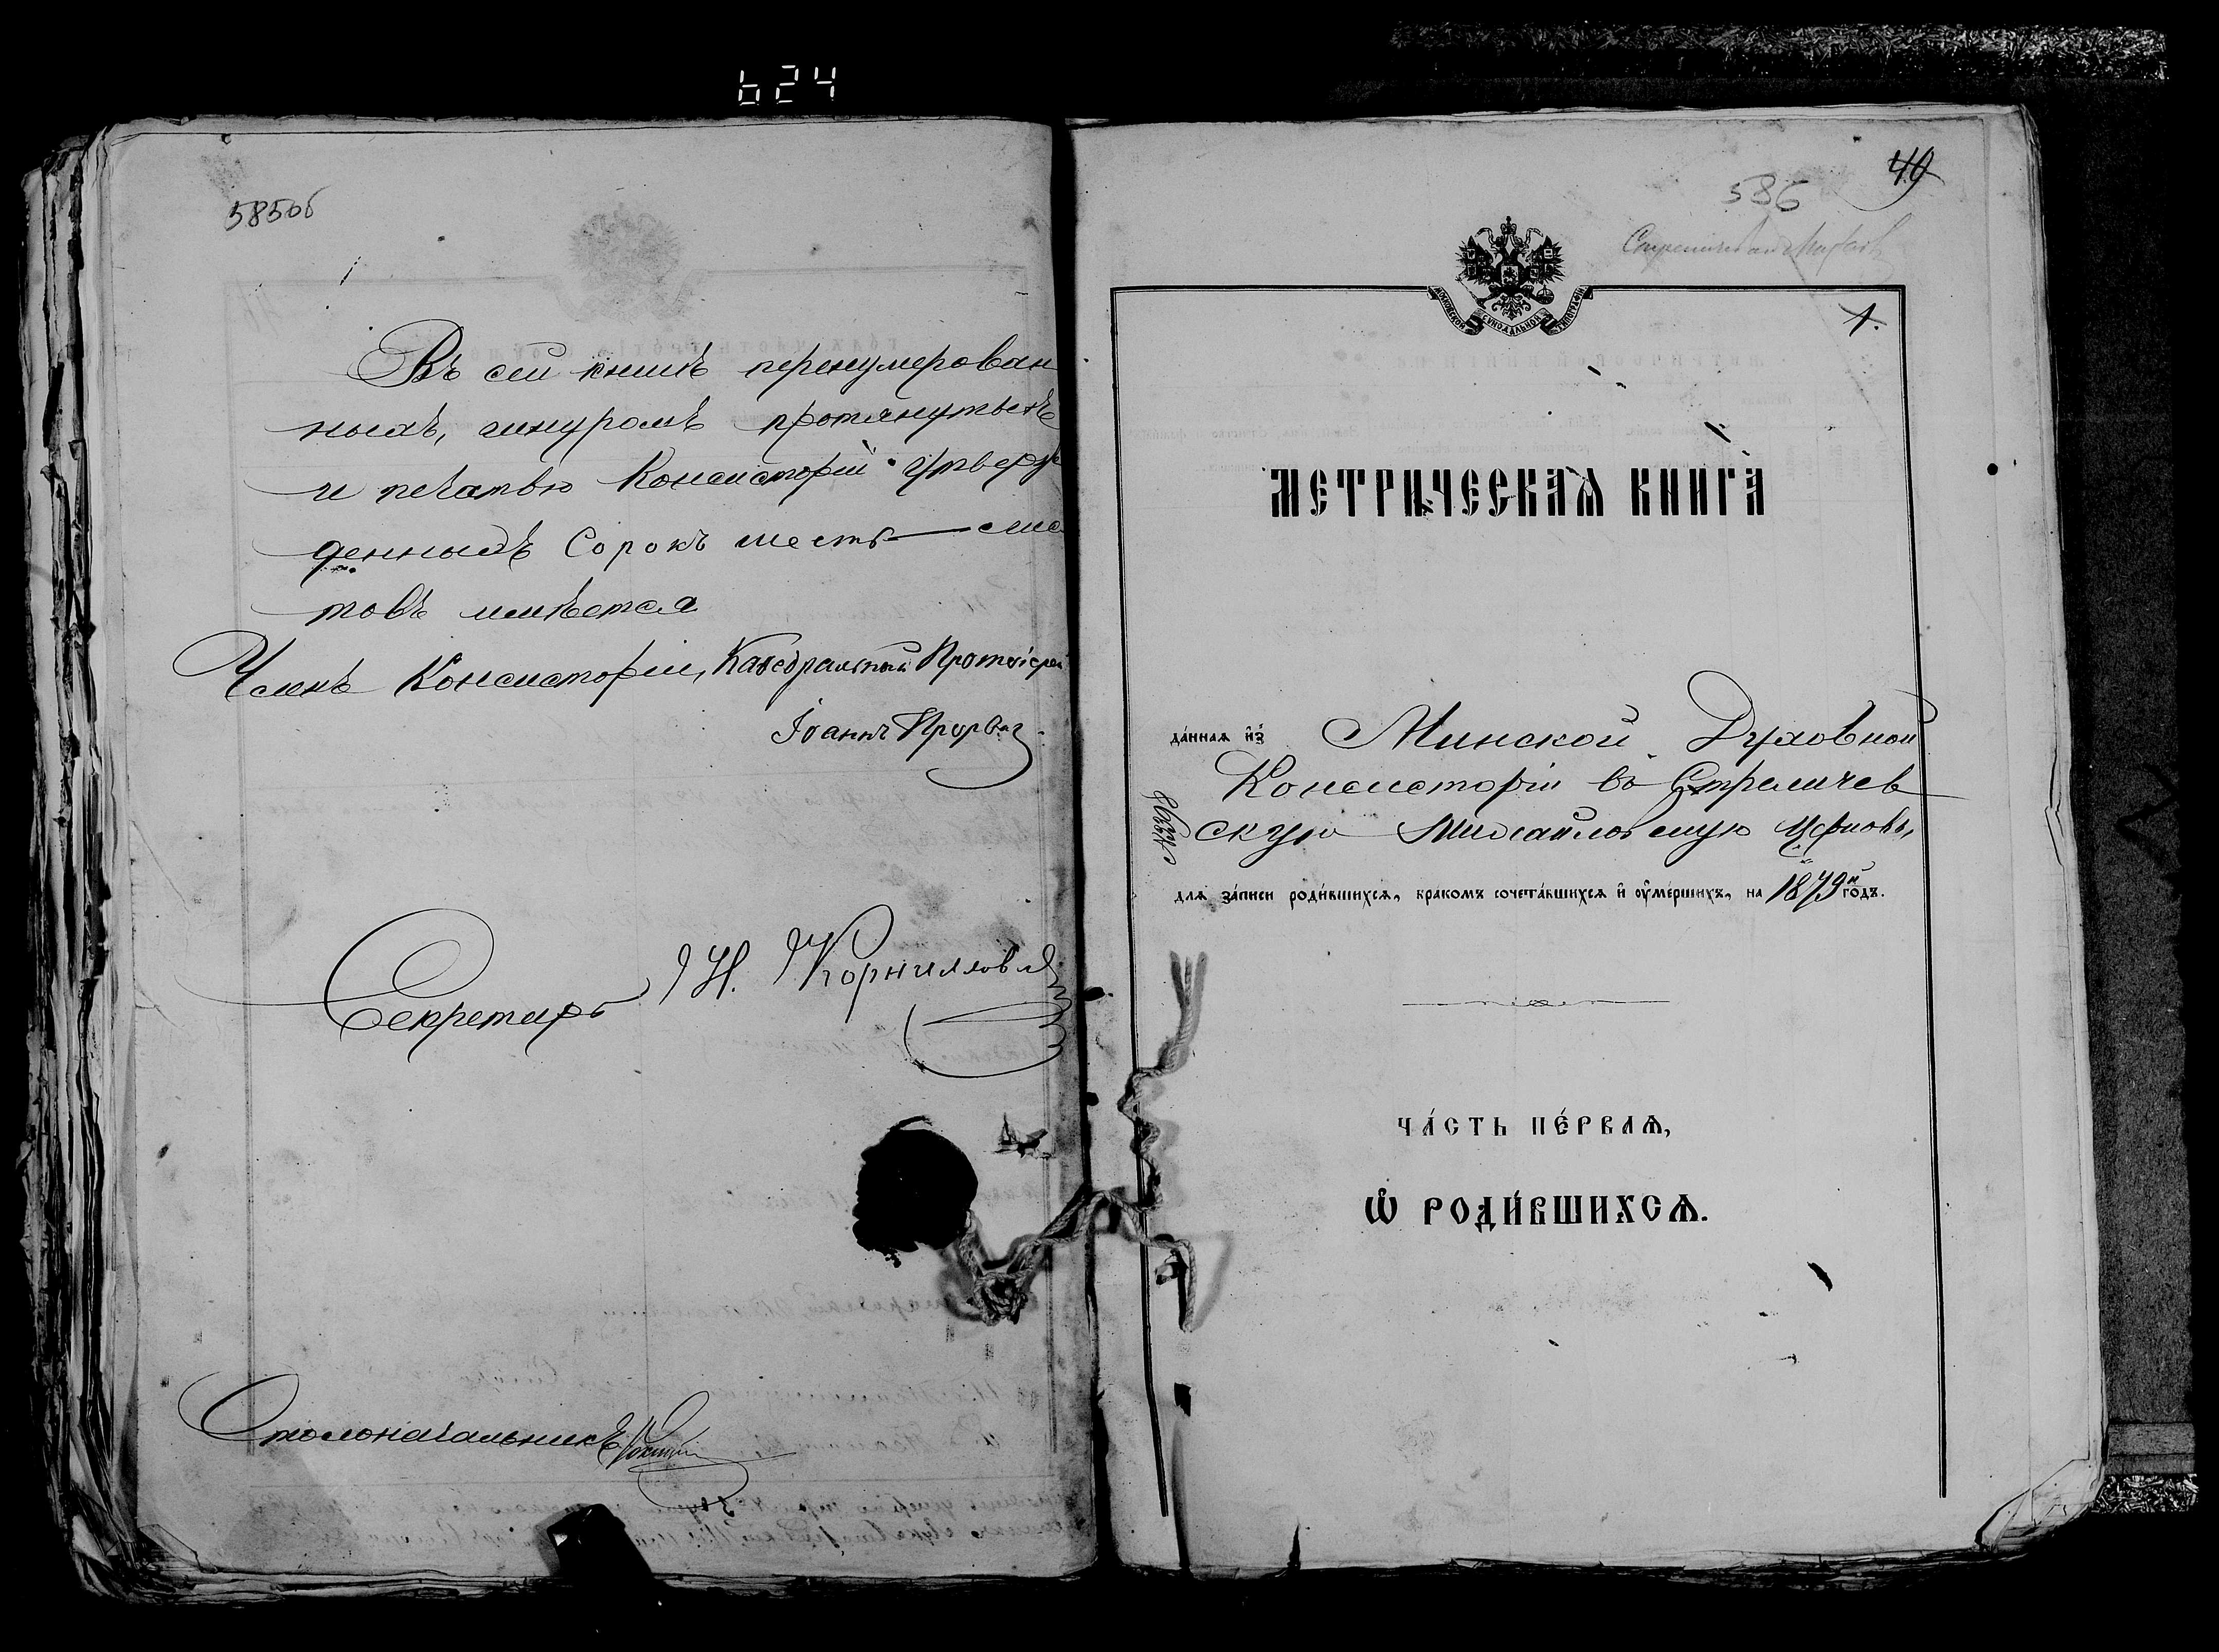 624
585об
Въ сей книгѣ перенумерован
ныхъ, шнуромъ протянутыхъ
и печатью Консисторіи утверж
денныхъ Сорокъ шесть лис
товъ имѣется
Членъ Консисторіи, Каѳедральный Протоіерей
Іоаннъ
Секретарь Н. Корниловъ
Столоначальникъ
49
586
МОСКОВСКОЙ СѴНОДАЛЬНОЙ ТИПОГРАФІИ
1.
МЕТРИ́ЧЕСКАѦ КНИ́ГА
да́ннаѧ и҆з̾ Минской Духовной
Консисторіи въ Стреличев
скую Михайловскую церковь,
для за́писи роди́вшихсѧ, бра́комъ сочета́вшихсѧ и҆ ᲂу҆ме́ршихъ, на 1879й го́дъ.
ЧА́СТЬ ПЕ́РВАѦ,
Ѽ РОДИ́ВШИХСѦ.